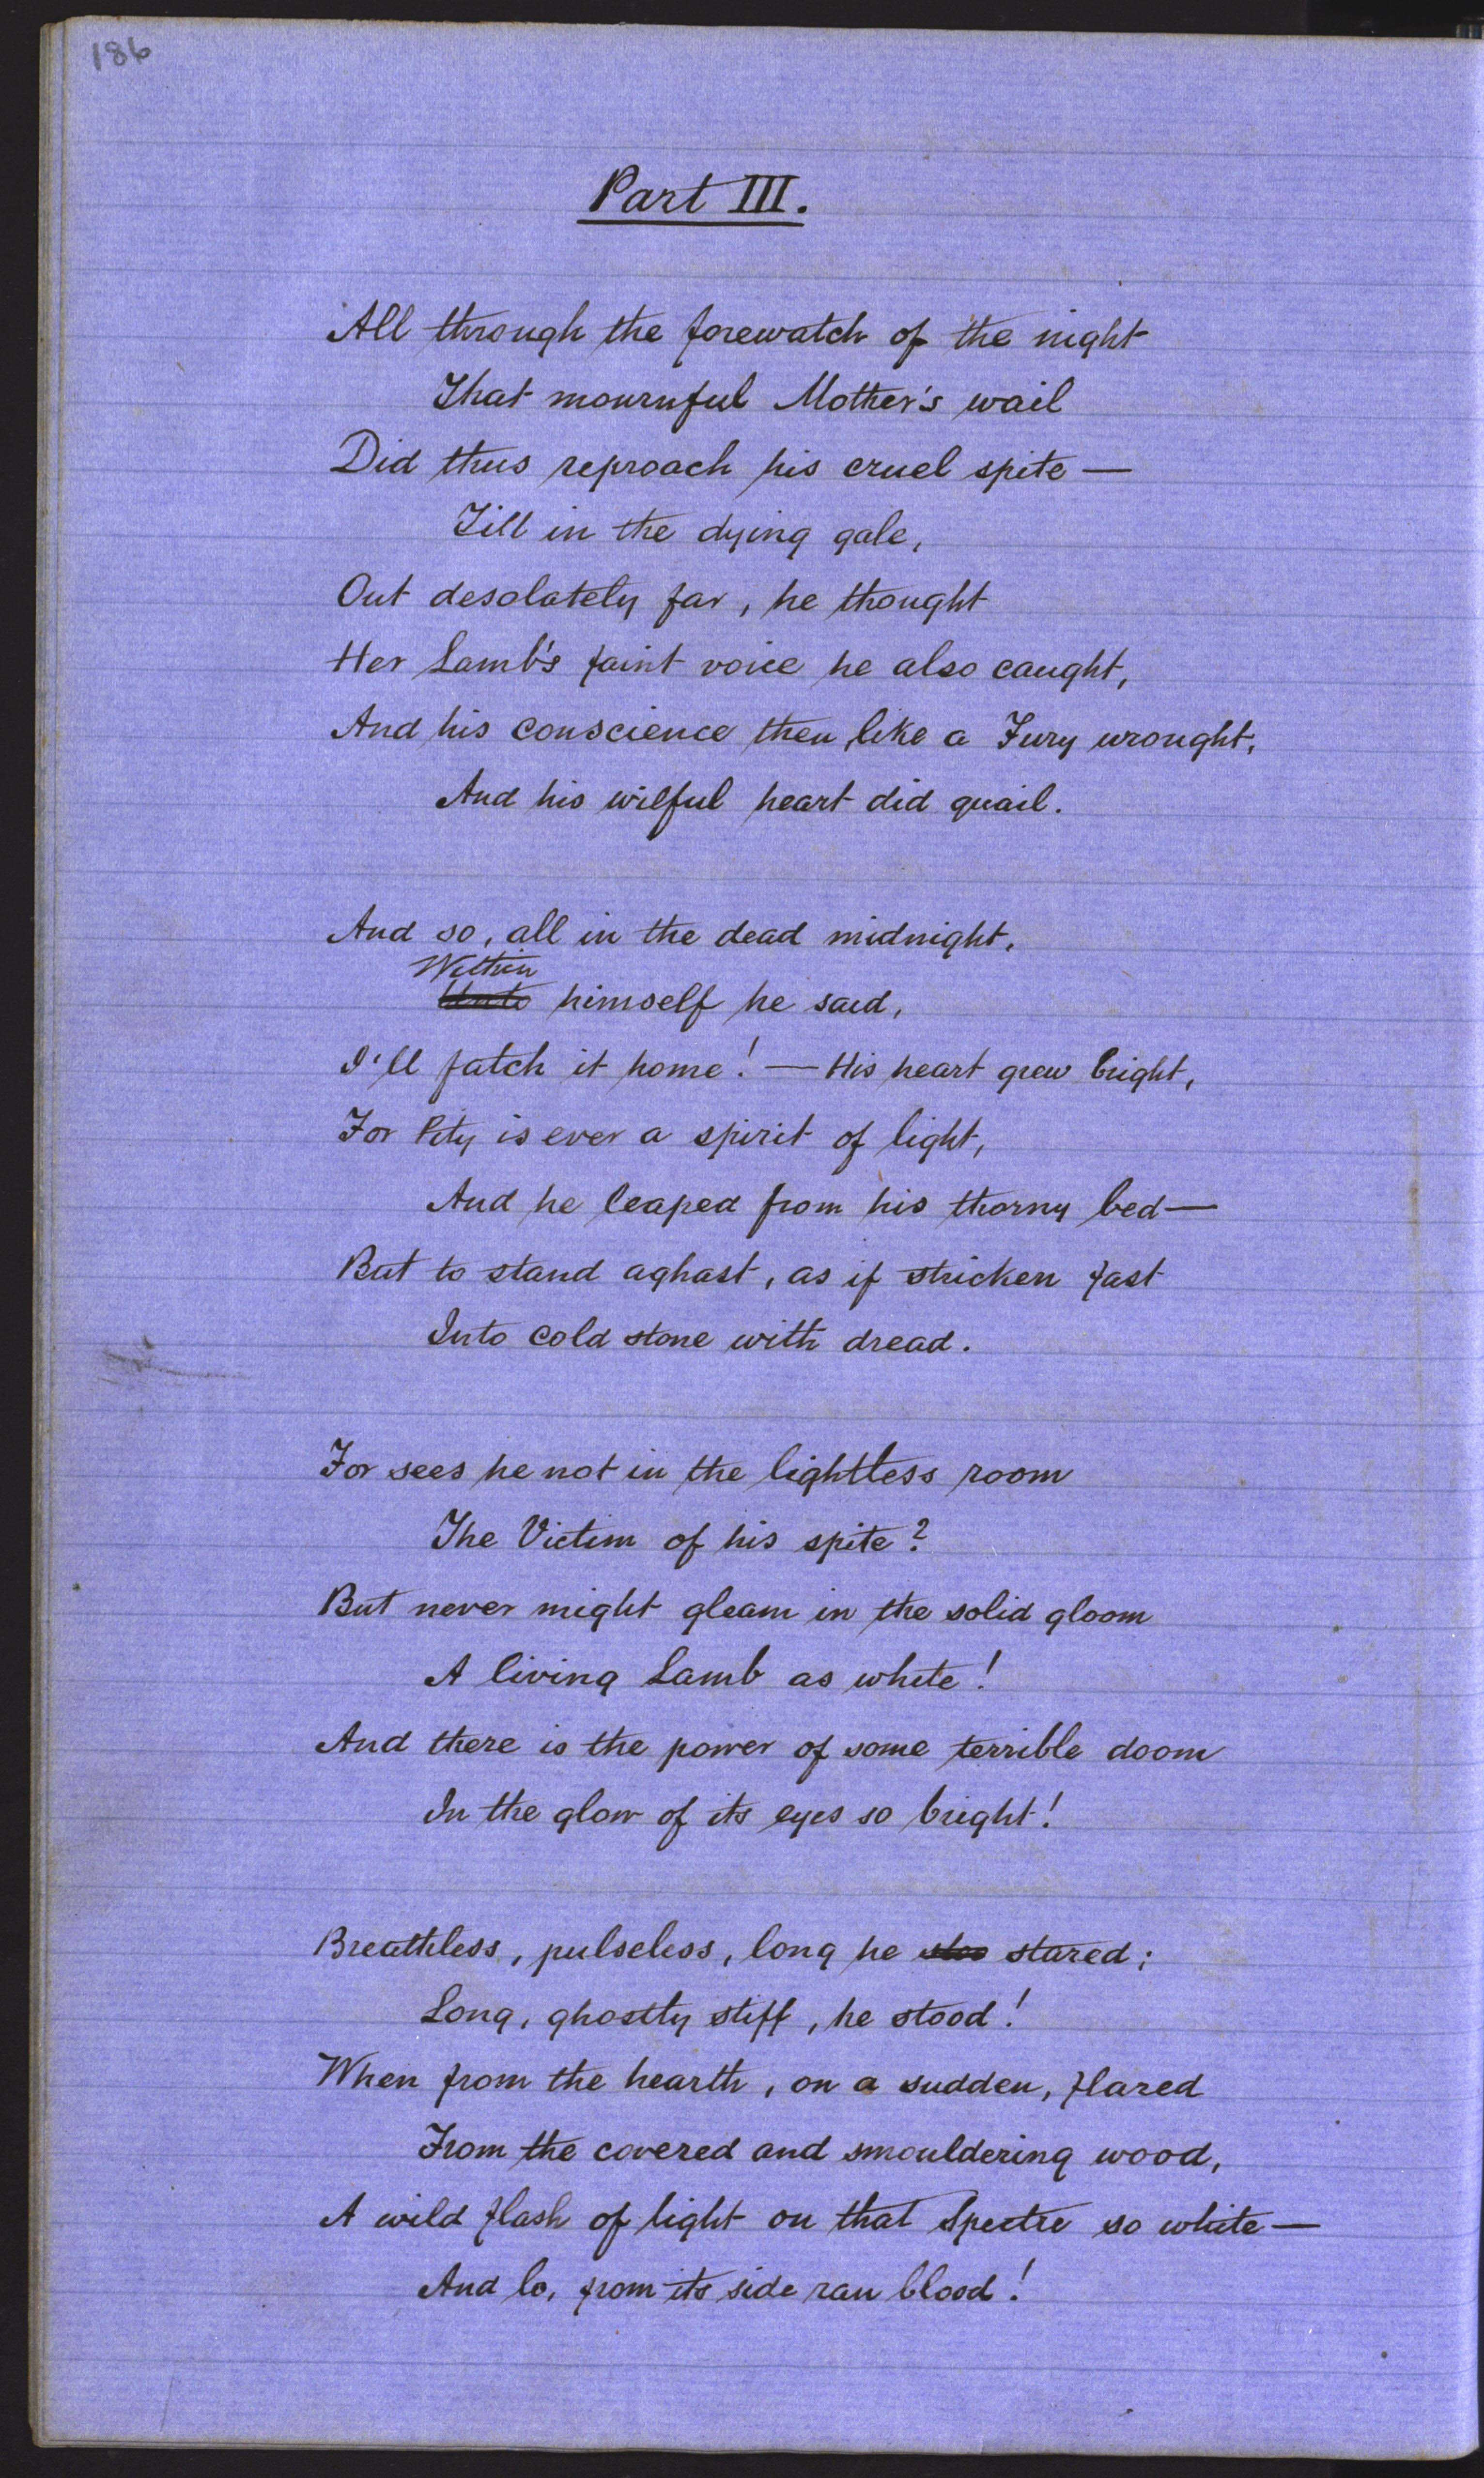 186
Part III.
All through the forewatch of the night
That mournful Mother's wail
Did thus reproach his cruel spite —
Till in the dying gale,
Out desolately far, he thought
Her Lamb's faint voice he also caught,
And his conscience then like a Fury wrought,
And his wilful heart did quail.
And so, all in the dead midnight,
Within
Unto himself he said,
I'll fatch it home! — His heart grew bright,
For Pity is ever a spirit of light,
And he leaped from his thorny bed —
But to stand aghast, as if stricken fast
Into cold stone with dread.
For sees he not in the lightless room
The Victim of his spite?
But never might gleam in the solid gloom
A living Lamb as white!
And there is the power of some terrible doom
In the glow of its eyes so bright!
Breathless, pulseless, long he stared;
Long, ghostly stiff, he stood!
When from the hearth, on a sudden, flared
From the covered and smouldering wood,
A wild flash of light on that Spectre so white —
And lo, from its side ran blood!